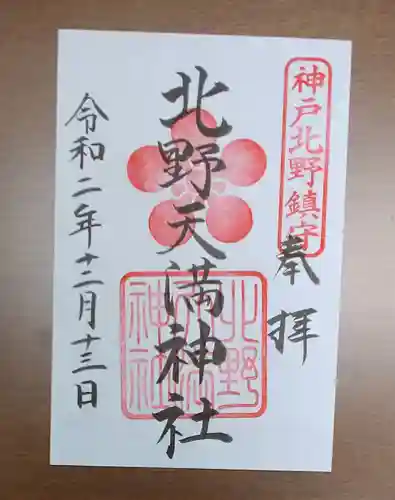 神戸北野鎮守
奉拝
北野天満神社
北野天満神社
令和二年十二月十三日